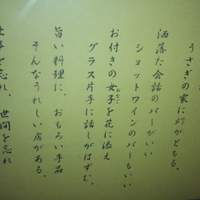 うさぎの家に灯がともる。
洒落た会話のバーがいい
ショットワインのバーもいい
お付きの女子を花に添え
グラス片手に話がはずむ。
旨い料理に、おもろい手品
そんなうれしい店がある。
仕事を忘れ、世間を忘れ